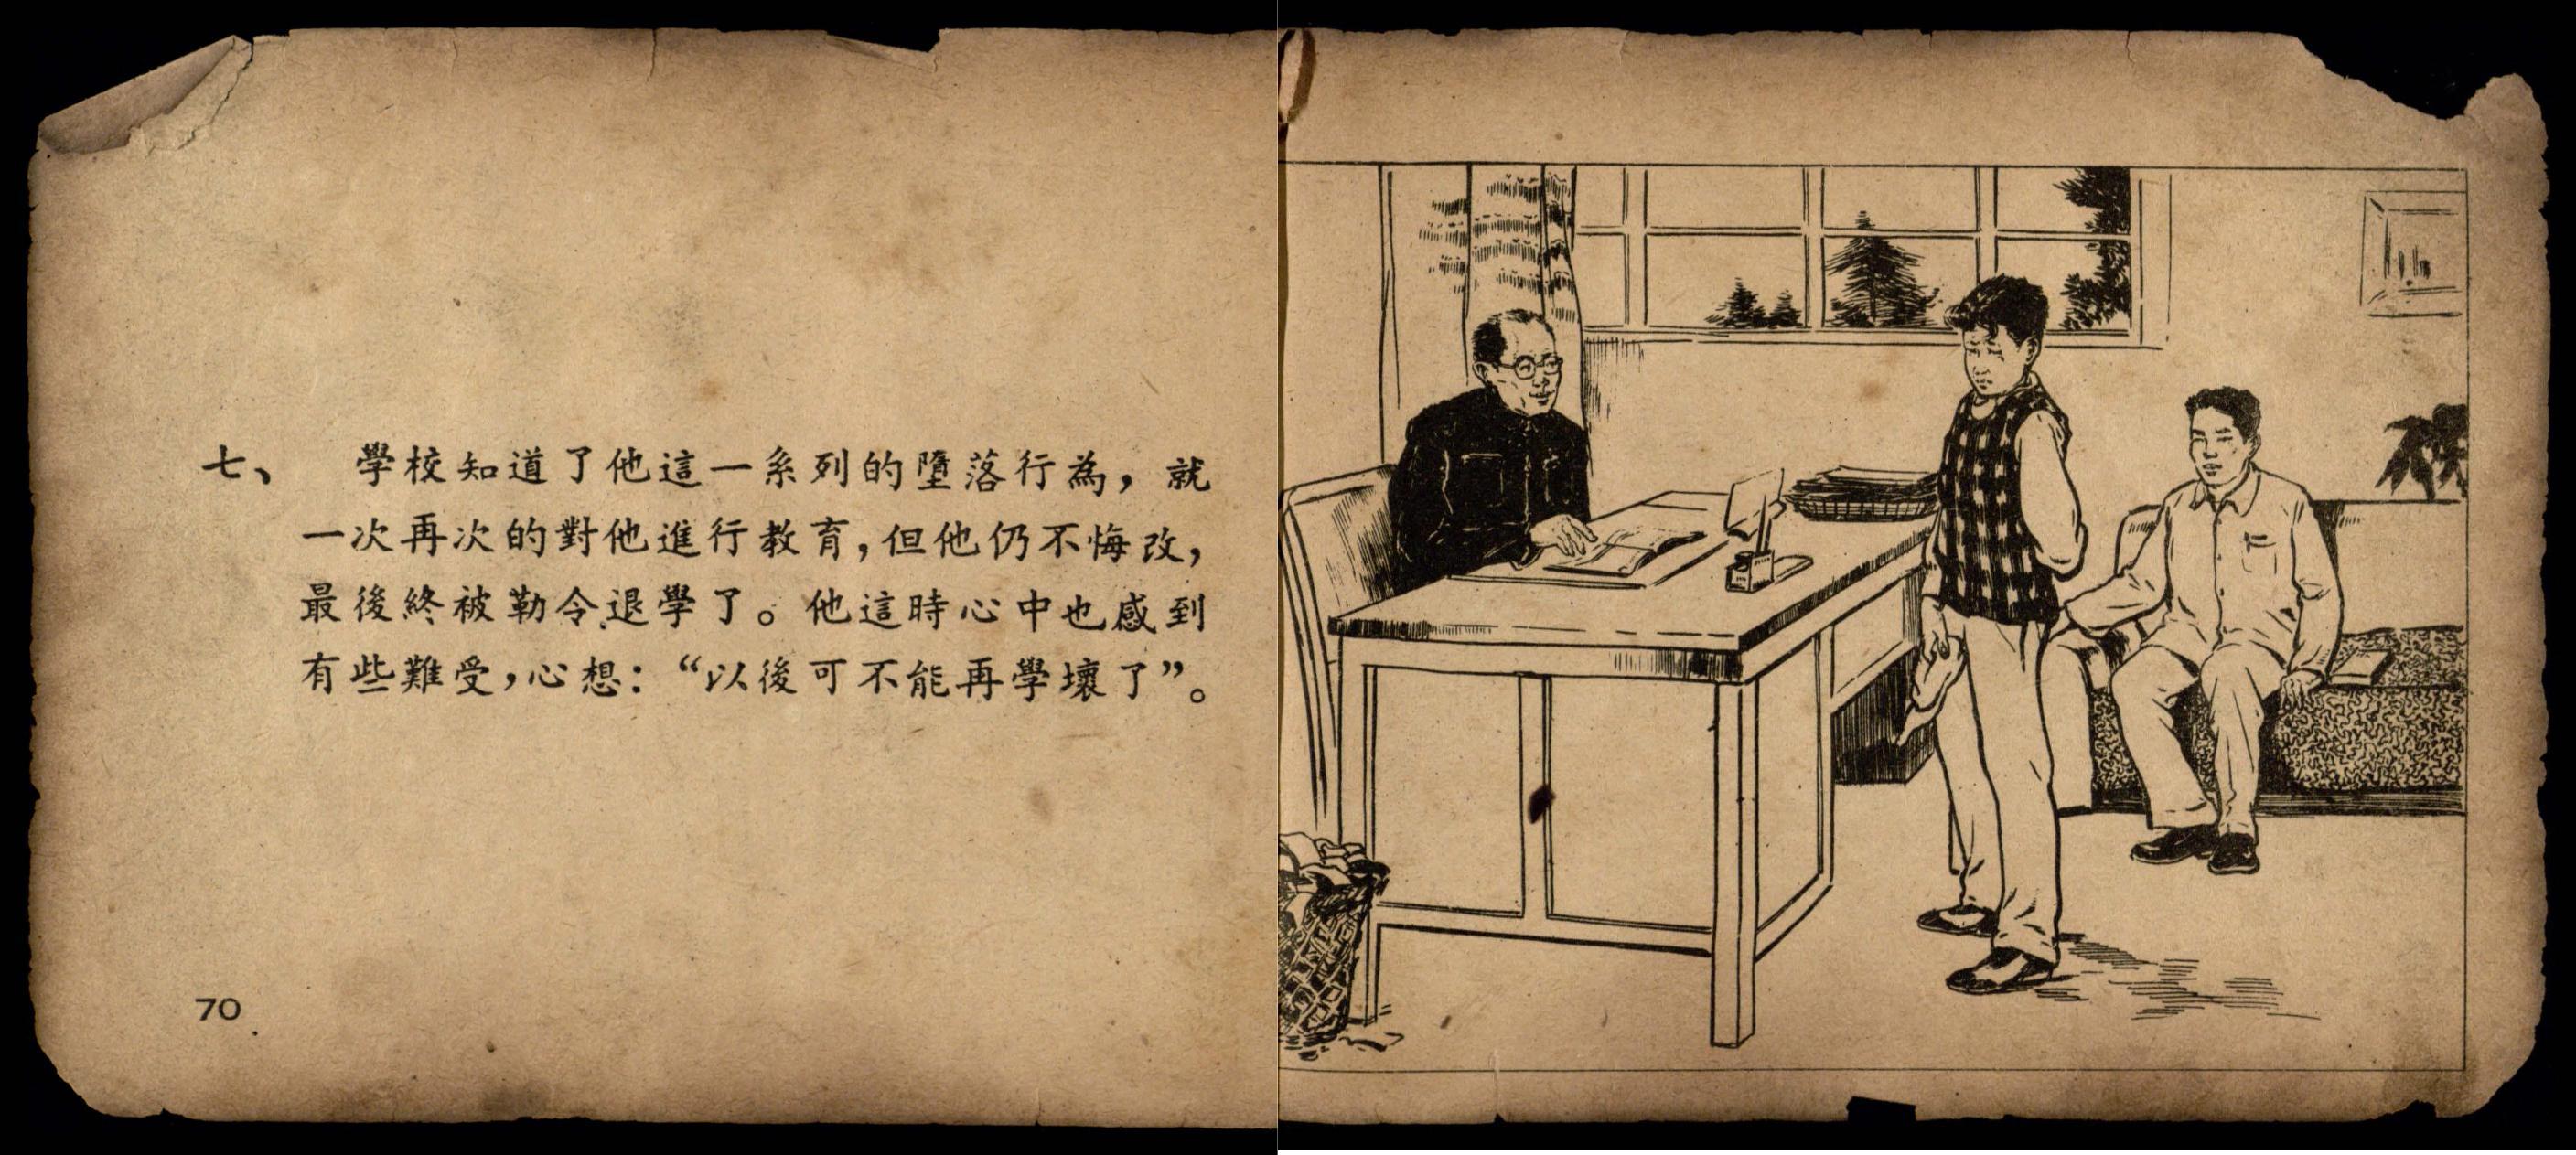 七、 學校知道了他這一系列的墮落行為，就
一次再次的對他進行教育，但他仍不悔改，
最後終被勒令退學了。他這時心中也感到
有些難受，心想：“以後可不能再學壞了”。
70